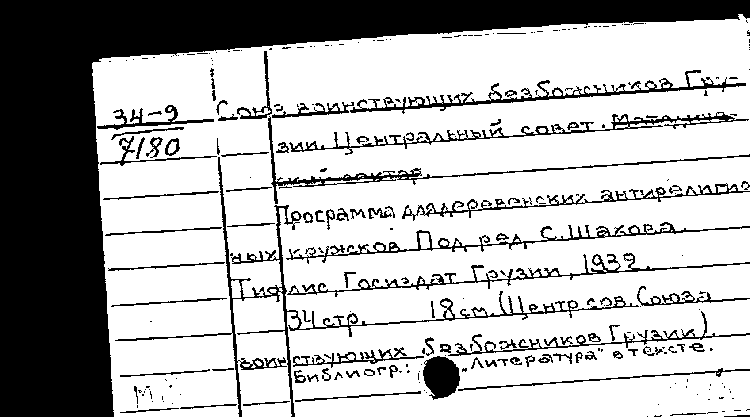 34-9
7180
Союз воинствующих безбожников Гру-
зии. Центральный совет. Методиче-
ский сектор.
Программа для деревенских антирелигиоз
ных кружков Под ред. С. Шахова.
Тифлис, Госиздат Грузии, 1932.
34 стр. 18 см. (Центр. сов. Союза
воинствующих безбожников Грузии).
Библиогр.: „Литература" в тексте.